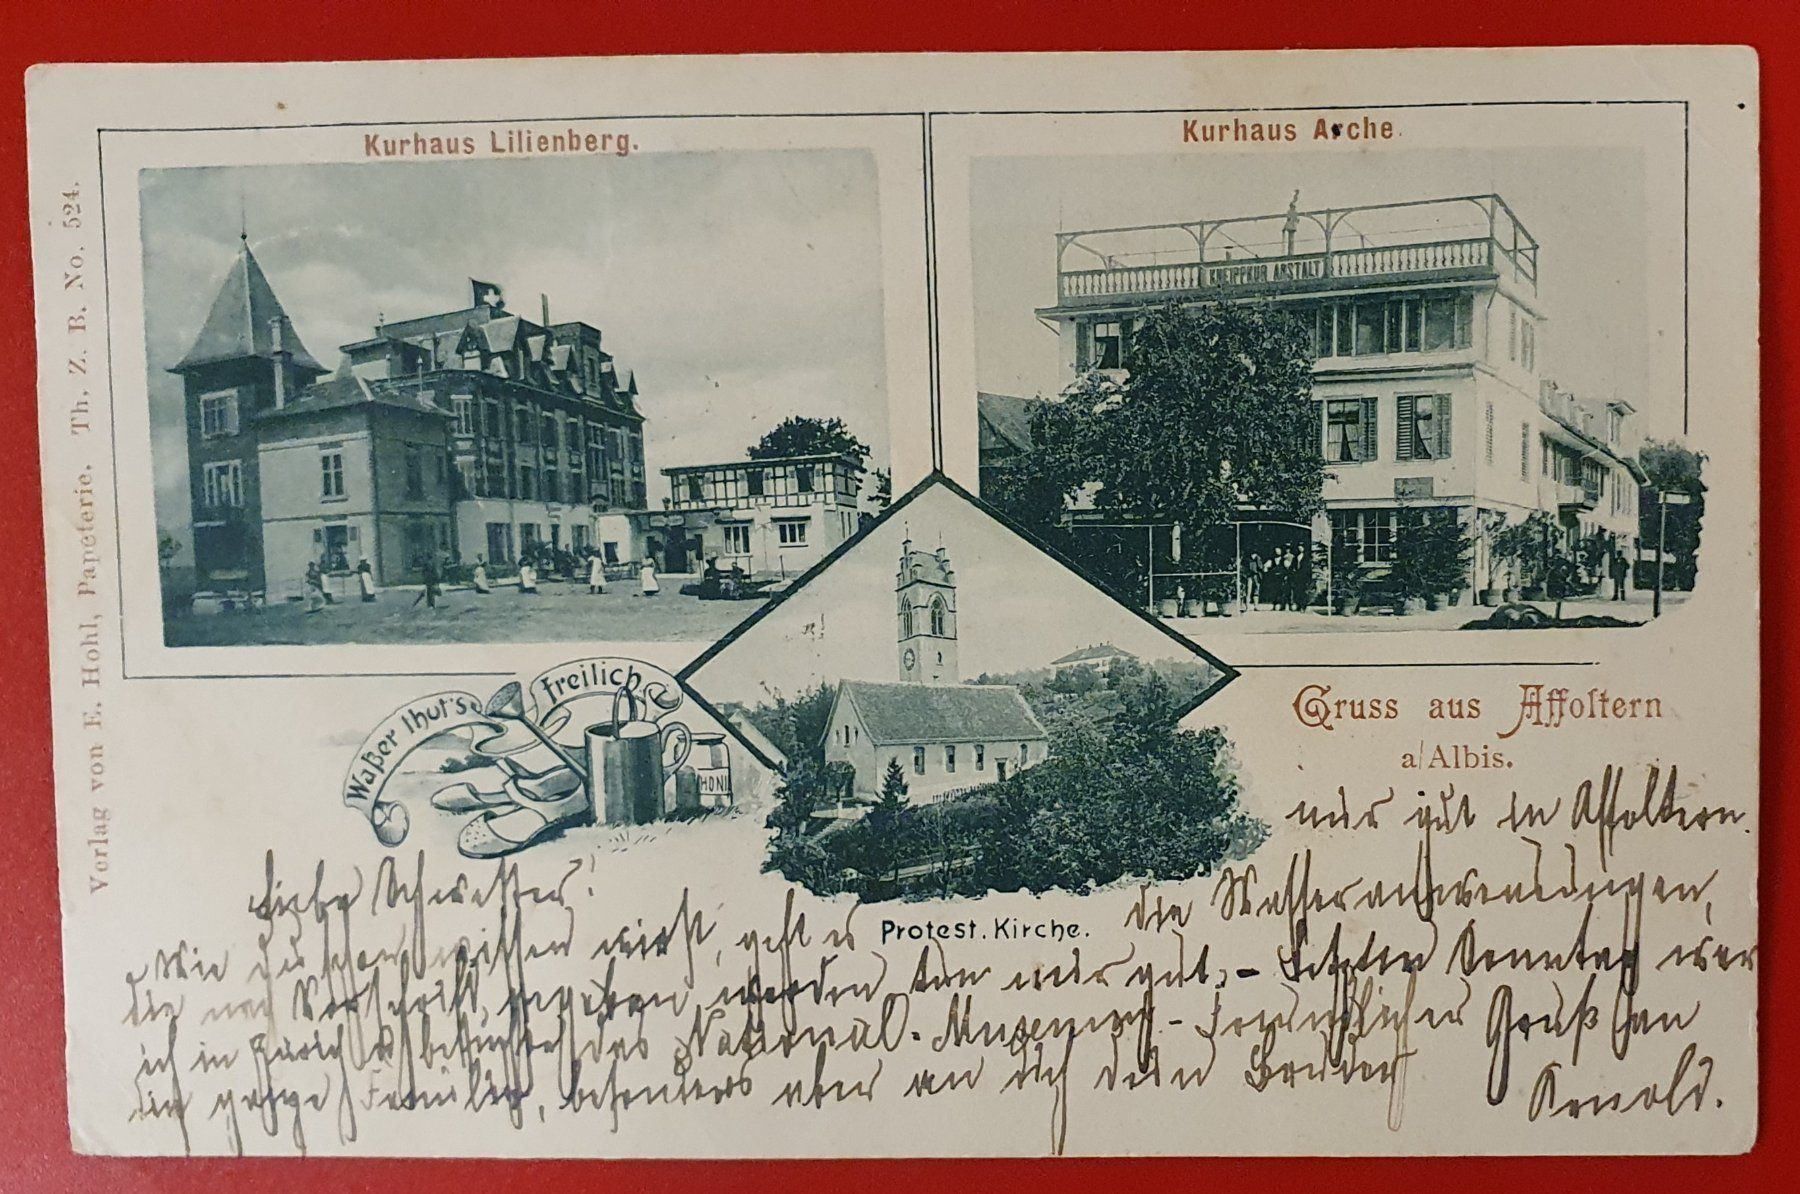 Kurhaus Lilienberg.
Kurhaus Arche.
KNEIPPKUR ANSTALT
Verlag von E. Hohl, Papeterie. Th. Z. B. No. 524.
Waßer thut's freilich
HONI
Protest. Kirche.
Gruss aus Affoltern
a/Albis.
Liebe Schwester!
Wie du schon wissen wirst, geht es
mir gut in Affoltern.
die Wasseranwendungen,
die nach Vorschrift gegeben werden tun mir gut. – Letzten Sonntag war
ich in Zürich u. besuchte das National-Museum. – Freundlicher Gruß an
die ganze Familie, besonders aber an dich dein Bruder
Arnold.